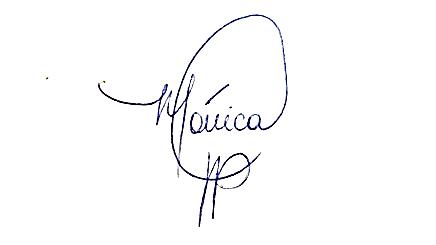 Mónica